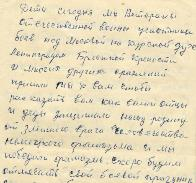 Дети сегодня мы Ветераны
Отечественной войны участники
боев под Москвой на курской дуге
Ленинградом Брестской крепости
и многих других сражений
пришли к Вам чтобы
рассказать вам как ваши отцы
и деды защищали нашу родину
от злейшего врага человечества
немецкого фашизма и мы
победили фашизм. Скоро будем
отмечать свой боевой праздник